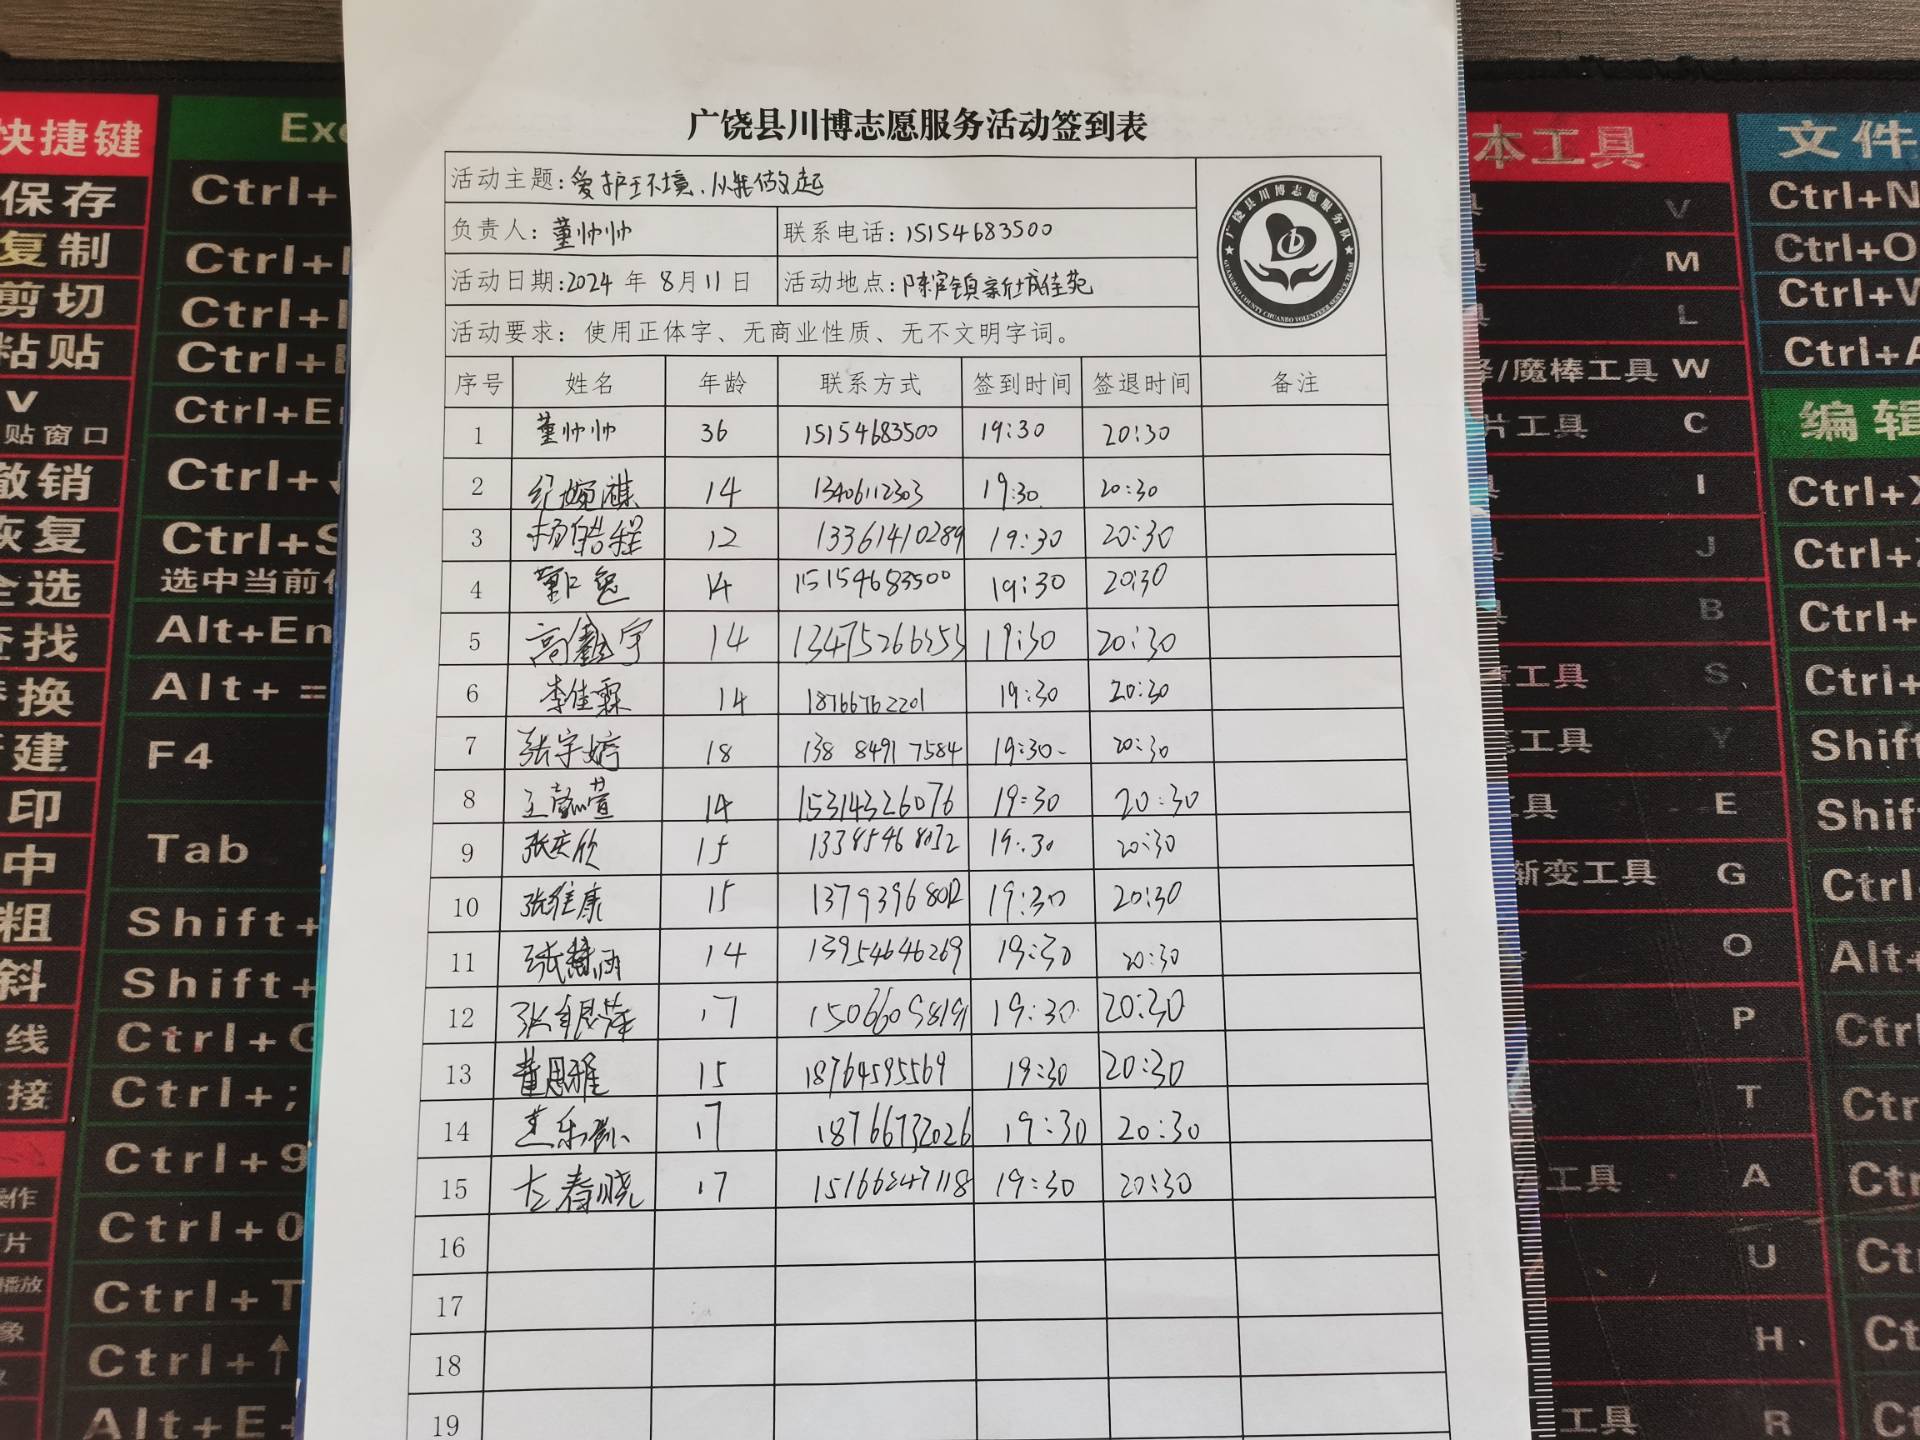 广饶县川博志愿服务活动签到表
活动主题：爱护环境，从我做起
负责人：董帅帅 联系电话：15154683500
活动日期：2024 年 8月 11 日 活动地点：陈官镇新仕城佳苑
活动要求：使用正体字、无商业性质、无不文明字词。
广饶县川博志愿服务队
GUANGRAO COUNTY CHUANBO VOLUNTEER SERVICE TEAM
序号 姓名 年龄 联系方式 签到时间 签退时间 备注
1 董帅帅 36 15154683500 19:30 20:30
2 14 13406112303 19:30 20:30
3 杨皓程 12 13361410289 19:30 20:30
4 14 15154683500 19:30 20:30
5 14 19:30 20:30
6 李佳霖 14 18766762201 19:30 20:30
7 张宇婷 18 138 8491 7584 19:30 20:30
8 14 15314326076 19:30 20:30
9 张奕欣 15 19:30 20:30
10 张维康 15 19:30 20:30
11 14 13954646269 19:30 20:30
12 17 19:30 20:30
13 董思雅 15 18764595569 19:30 20:30
14 17 18766732026 19:30 20:30
15 左春晓 17 15166247118 19:30 20:30
16
17
18
19
快捷键
保存 Ctrl+
复制 Ctrl+
剪切 Ctrl+
粘贴 Ctrl+
V
贴窗口
撤销 Ctrl+
恢复 Ctrl+S
全选 选中当前
查找 Alt+En
替换 Alt+=
新建 F4
印
中 Tab
粗 Shift+
斜 Shift+
线 Ctrl+
接 Ctrl+;
Ctrl+9
操作 Ctrl+0
播放 Ctrl+T
象 Ctrl+↑
Alt+E+
本工具
V
M
L
/魔棒工具 W
片工具 C
I
J
B
工具 S
工具 Y
工具 E
渐变工具 G
O
P
T
工具 A
U
H
工具 R
文件
Ctrl+N
Ctrl+O
Ctrl+W
Ctrl+A
编辑
Ctrl+X
Ctrl+
Ctrl+
Ctrl+
Shif
Shif
Ctrl
Alt+
Ctrl
Ctrl
Ctrl
Ctrl
Ct
Ct